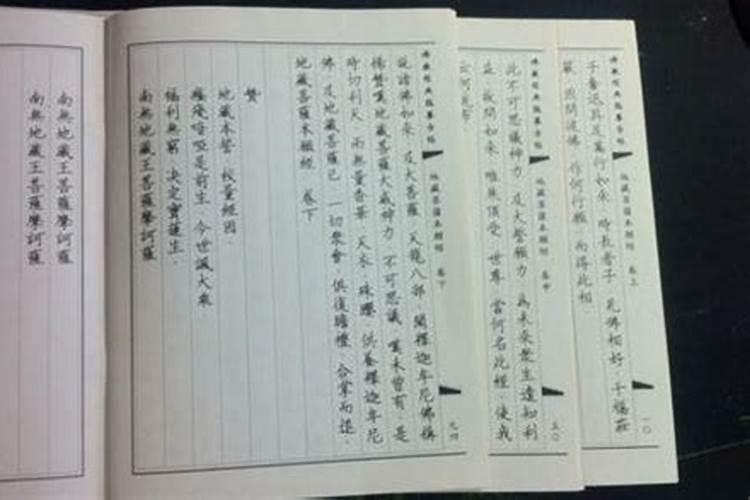 地藏菩薩本願經 卷上
一〇
子奮迅具足萬行如來 時長者子 見佛相好 千福莊
嚴 因問彼佛 作何行願 而得此相
地藏菩薩本願經 卷中
五〇
此不可思議神力 及大誓願力 為未來眾生遠知利
益 故問如來 唯然頂受 世尊 當何名此經 使我
云何流布
地藏菩薩本願經 卷下
九四
說諸佛如來 及大菩薩 天龍八部 聞釋迦牟尼佛稱
揚讚嘆地藏菩薩大威神力 不可思議 嘆未曾有 是
時忉利天 雨無量香華 天衣 珠瓔 供養釋迦牟尼
佛 及地藏菩薩已 一切眾會 俱復瞻禮 合掌而退.
地藏菩薩本願經 卷下
讚
地藏本誓 校量經因.
癃殘瘖啞是前生 今世誦大乘
福利無窮 決定寶蓮生.
南無地藏王菩薩摩訶薩
南無地藏王菩薩摩訶薩
南無地藏王菩薩摩訶薩